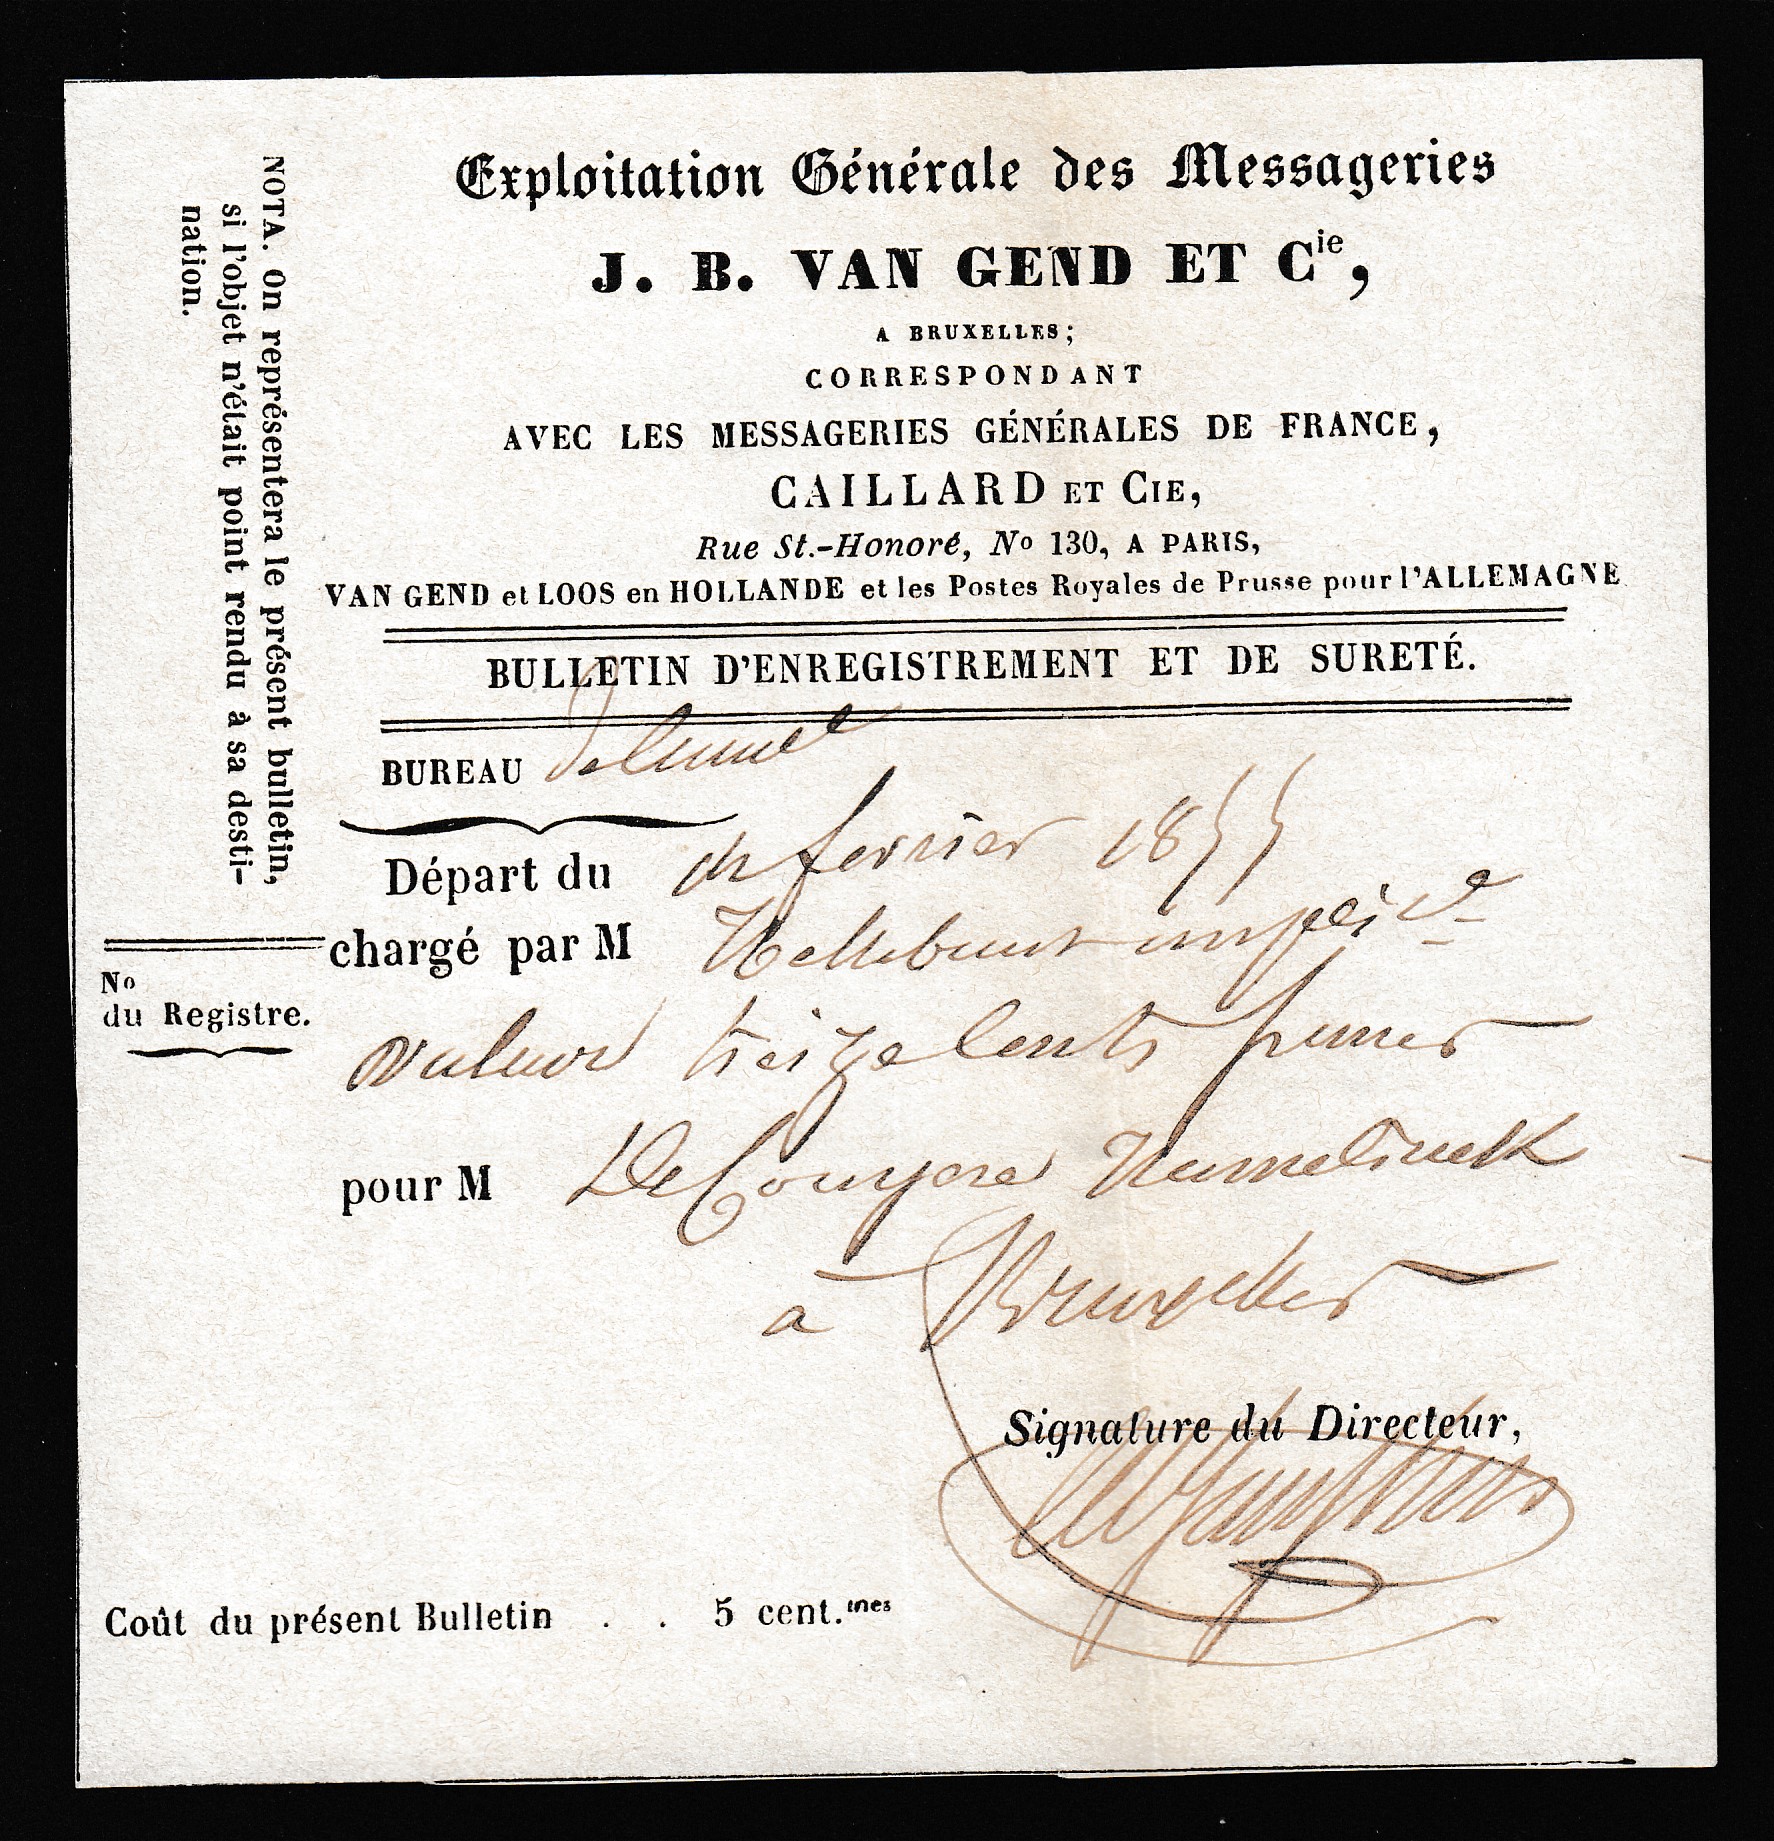 Exploitation Générale des Messageries
J. B. VAN GEND ET Cie,
A BRUXELLES;
CORRESPONDANT
AVEC LES MESSAGERIES GÉNÉRALES DE FRANCE,
CAILLARD ET CIE,
Rue St.-Honoré, No 130, A PARIS,
VAN GEND et LOOS en HOLLANDE et les Postes Royales de Prusse pour l'ALLEMAGNE
BULLETIN D'ENREGISTREMENT ET DE SURETÉ.
BUREAU
Départ du fevrier 1855
chargé par M
valeur treize cents
pour M
a Bruxelles
Signature du Directeur,
Coût du présent Bulletin . . 5 cent.mes
NOTA. On représentera le présent bulletin,
si l'objet n'était point rendu à sa desti-
nation.
No
du Registre.